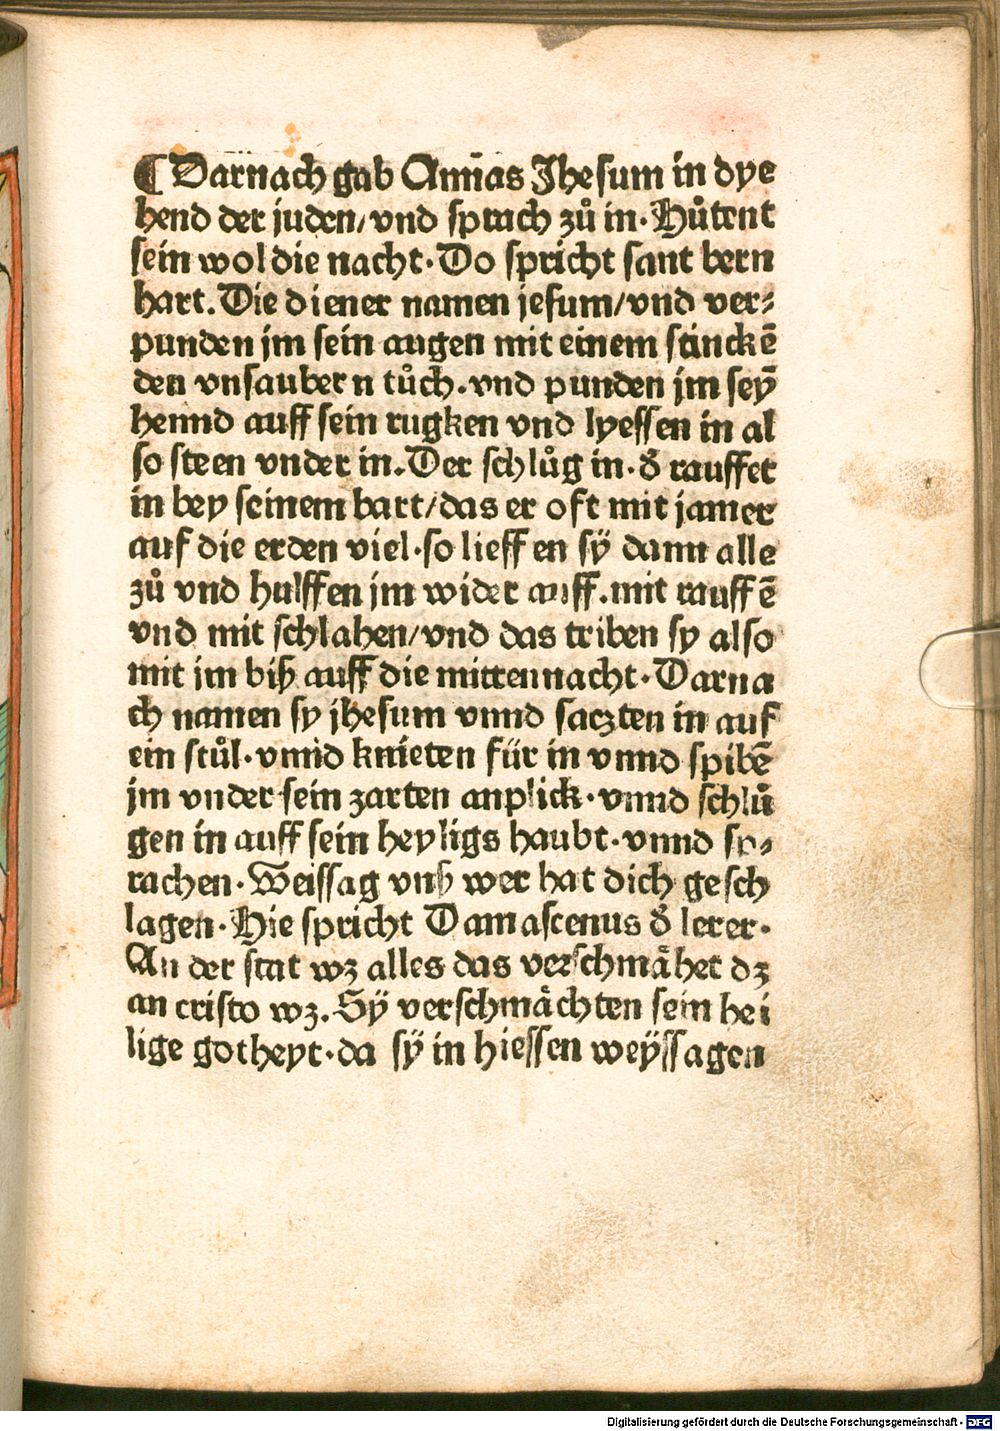 ¶ Darnach gab Annas Jhesum in dye
hend der juden/ vnd sprach zů in· Hůtent
sein wol die nacht· Do spricht sant bern
hart. Die diener namen jesum/ vnd ver⸗
punden jm sein augen mit einem stinckē
den vnsaubern tůch· vnd punden jm sey̅
hennd auff sein rugken vnd lyessen in al
so steen vnder in. Der schlůg in· d̕ rauffet
in bey seinem bart/ das er oft mit jamer
auf die erden viel· so lieffen sÿ dann alle
zů vnd hulffen jm wider auff. mit rauffē
vnd mit schlahen/ vnd das triben sy also
mit jm biß auff die mittennacht· Darna
ch namen sy jhesum vnnd saczten in auf
ein stůl· vnnd knieten für in vnnd spibē
jm vnder sein zarten anplick· vnnd schlů
gen in auff sein heyligs haubt· vnnd sp⸗
rachen· Weissag vnß wer hat dich gesch
lagen· Hie spricht Damascenus d̕ lerer·
An der stat wz alles das verschmähet dz
an cristo wz. Sÿ verschmächten sein hei
lige gotheyt· da sÿ in hiessen weÿssagen
Digitalisierung gefördert durch die Deutsche Forschungsgemeinschaft - DFG